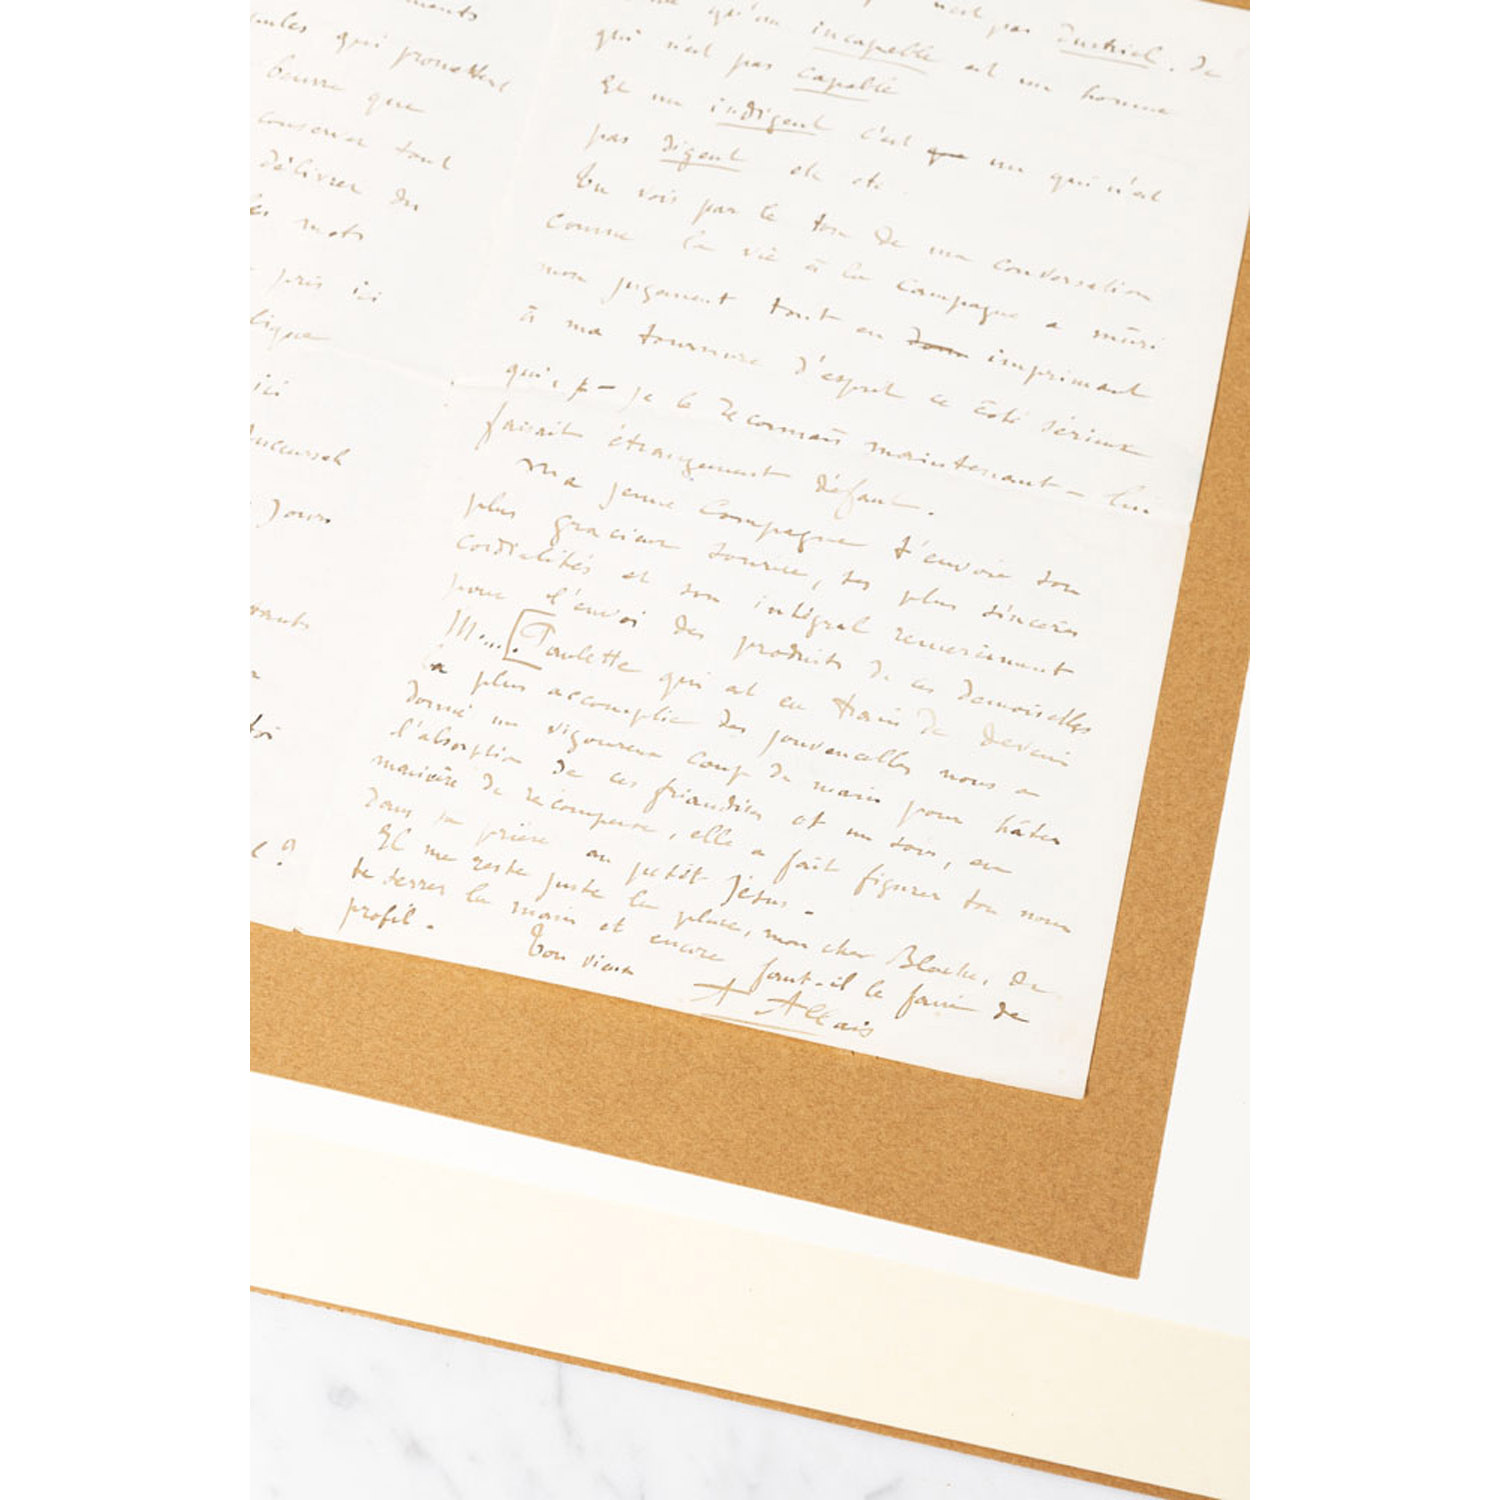 ments
qui promettent
beurre que
conserver tout
délivrer du
mots
pris ici
ici
Jours
toi
?
n'est pas dustriel. De
qu'un incapable est un homme
qui n'est pas capable
Et un indigent c'est que un qui n'est
pas digent etc etc.
Tu vois par le ton de ma conversation
comme la vie à la campagne a mûri
mon jugement tout en imprimant
à ma tournure d'esprit ce côté sérieux
qui, – je le reconnais maintenant – lui
faisait étrangement défaut.
Ma jeune compagne t'envoie son
plus gracieux sourire, ses plus sincères
cordialités et son intégral remerciement
pour l'envoi des produits de ces demoiselles
M.... [Paulette qui est en train de devenir
la plus accomplie des jouvencelles nous a
donné un vigoureux coup de main pour hâter
l'absorption de ces friandises et un soir, en
manière de récompense, elle a fait figurer ton nom
dans sa prière au petit Jésus.
Il me reste juste la place, mon cher Bloche, de
te serrer la main et encore faut-il le faire de
profil.
Ton vieux
A Allais